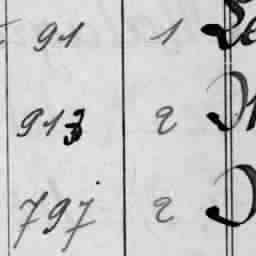 91 1
913 2
797 2